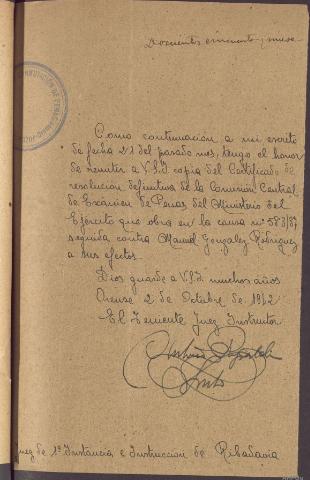 Documento cincuenta y nueve
Como continuacion a mi escrito
de fecha 21 del pasado mes, tengo el honor
de remitir a V.S.I. copia del Certificado de
resolucion definitiva de la Comisión Central
de Exámen de Penas del Ministerio del
Ejercito que obra en la causa nº 583/37
seguida contra Manuel Gonzalez Rodriguez
a sus efectos.
Dios guarde a V.S.I. muchos años
Orense 2 de Octubre de 1942
El Teniente Juez Instructor
Juez de 1ª Instancia e Instrucción de Ribadavia